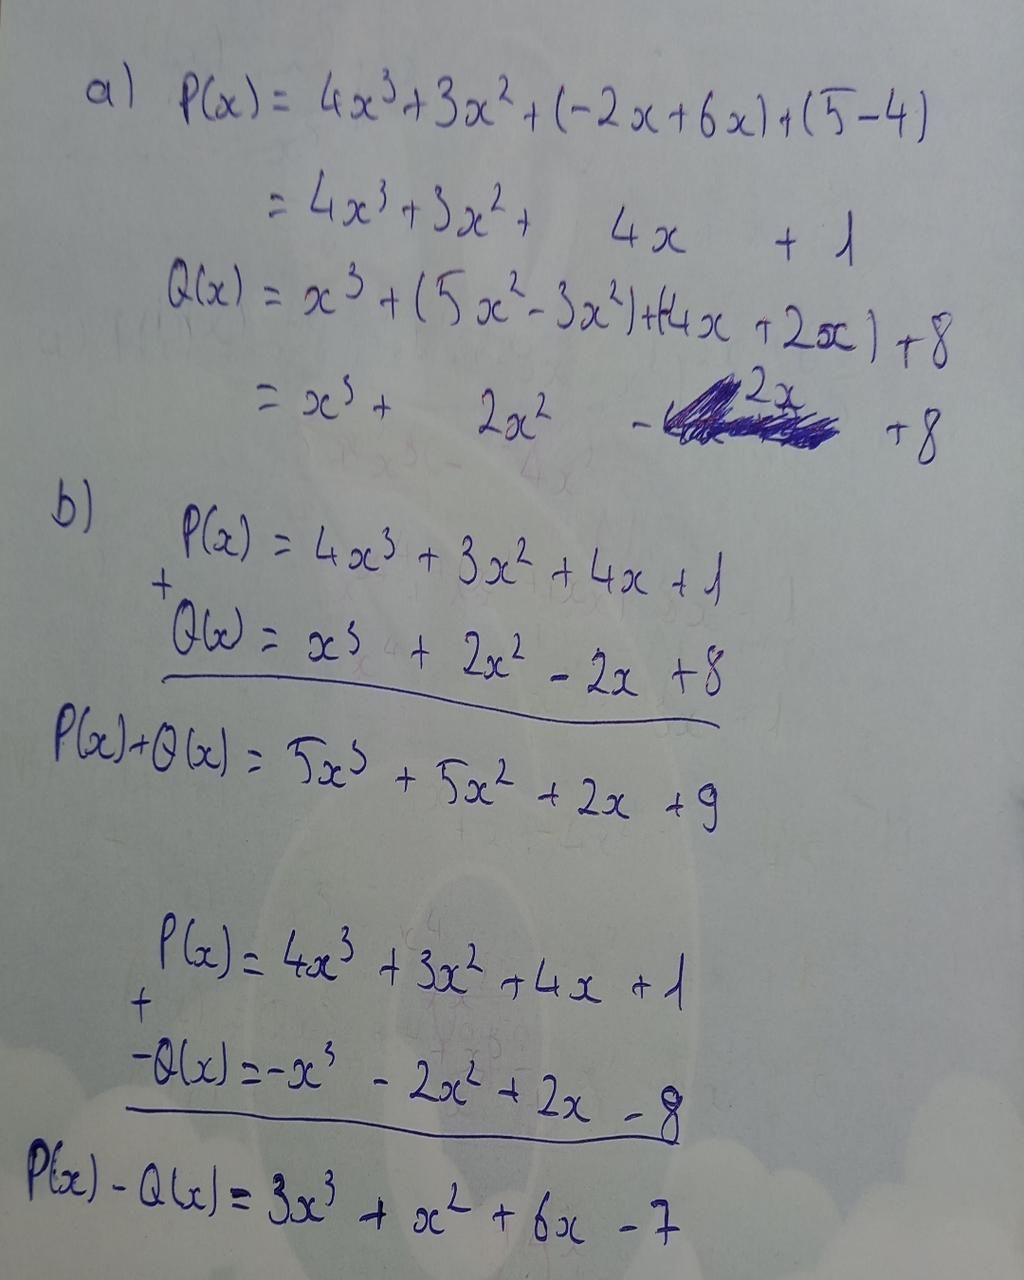 a) P(x) = 4x³ + 3x² + (-2x + 6x) + (5 - 4)
= 4x³ + 3x² + 4x + 1
Q(x) = x³ + (5x² - 3x²) + (-4x + 2x) + 8
= x³ + 2x² - 2x + 8
b)
P(x) = 4x³ + 3x² + 4x + 1
+
Q(x) = x³ + 2x² - 2x + 8
P(x) + Q(x) = 5x³ + 5x² + 2x + 9
P(x) = 4x³ + 3x² + 4x + 1
+
-Q(x) = -x³ - 2x² + 2x - 8
P(x) - Q(x) = 3x³ + x² + 6x - 7